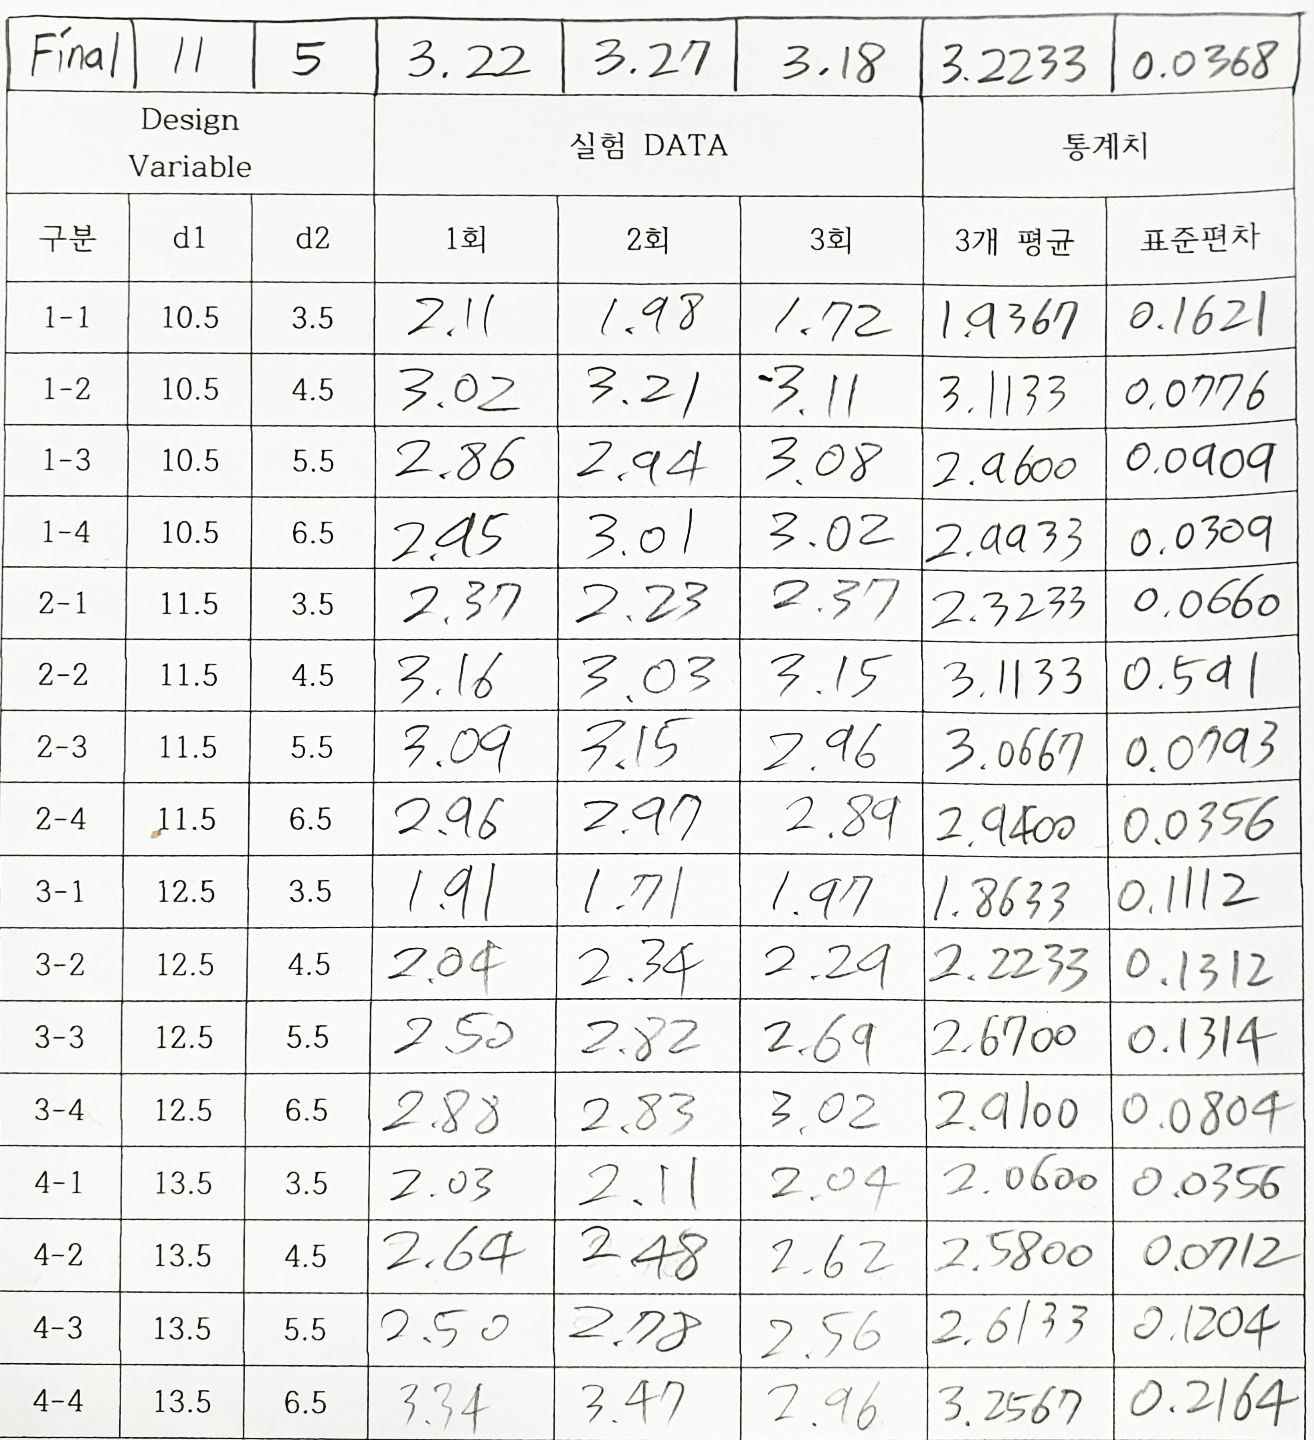 Final 11 5 3.22 3.27 3.18 3.2233 0.0368
Design
Variable
실험 DATA 통계치
구분 d1 d2 1회 2회 3회 3개 평균 표준편차
1-1 10.5 3.5 2.11 1.98 1.72 1.9367 0.1621
1-2 10.5 4.5 3.02 3.21 3.11 3.1133 0.0776
1-3 10.5 5.5 2.86 2.94 3.08 2.9600 0.0909
1-4 10.5 6.5 2.95 3.01 3.02 2.9933 0.0309
2-1 11.5 3.5 2.37 2.23 2.37 2.3233 0.0660
2-2 11.5 4.5 3.16 3.03 3.15 3.1133 0.591
2-3 11.5 5.5 3.09 3.15 2.96 3.0667 0.0793
2-4 11.5 6.5 2.96 2.97 2.89 2.9400 0.0356
3-1 12.5 3.5 1.91 1.71 1.97 1.8633 0.1112
3-2 12.5 4.5 2.04 2.34 2.29 2.2233 0.1312
3-3 12.5 5.5 2.50 2.82 2.69 2.6700 0.1314
3-4 12.5 6.5 2.88 2.83 3.02 2.9100 0.0804
4-1 13.5 3.5 2.03 2.11 2.04 2.0600 0.0356
4-2 13.5 4.5 2.64 2.48 2.62 2.5800 0.0712
4-3 13.5 5.5 2.50 2.78 2.56 2.6133 0.1204
4-4 13.5 6.5 3.34 3.47 2.96 3.2567 0.2164